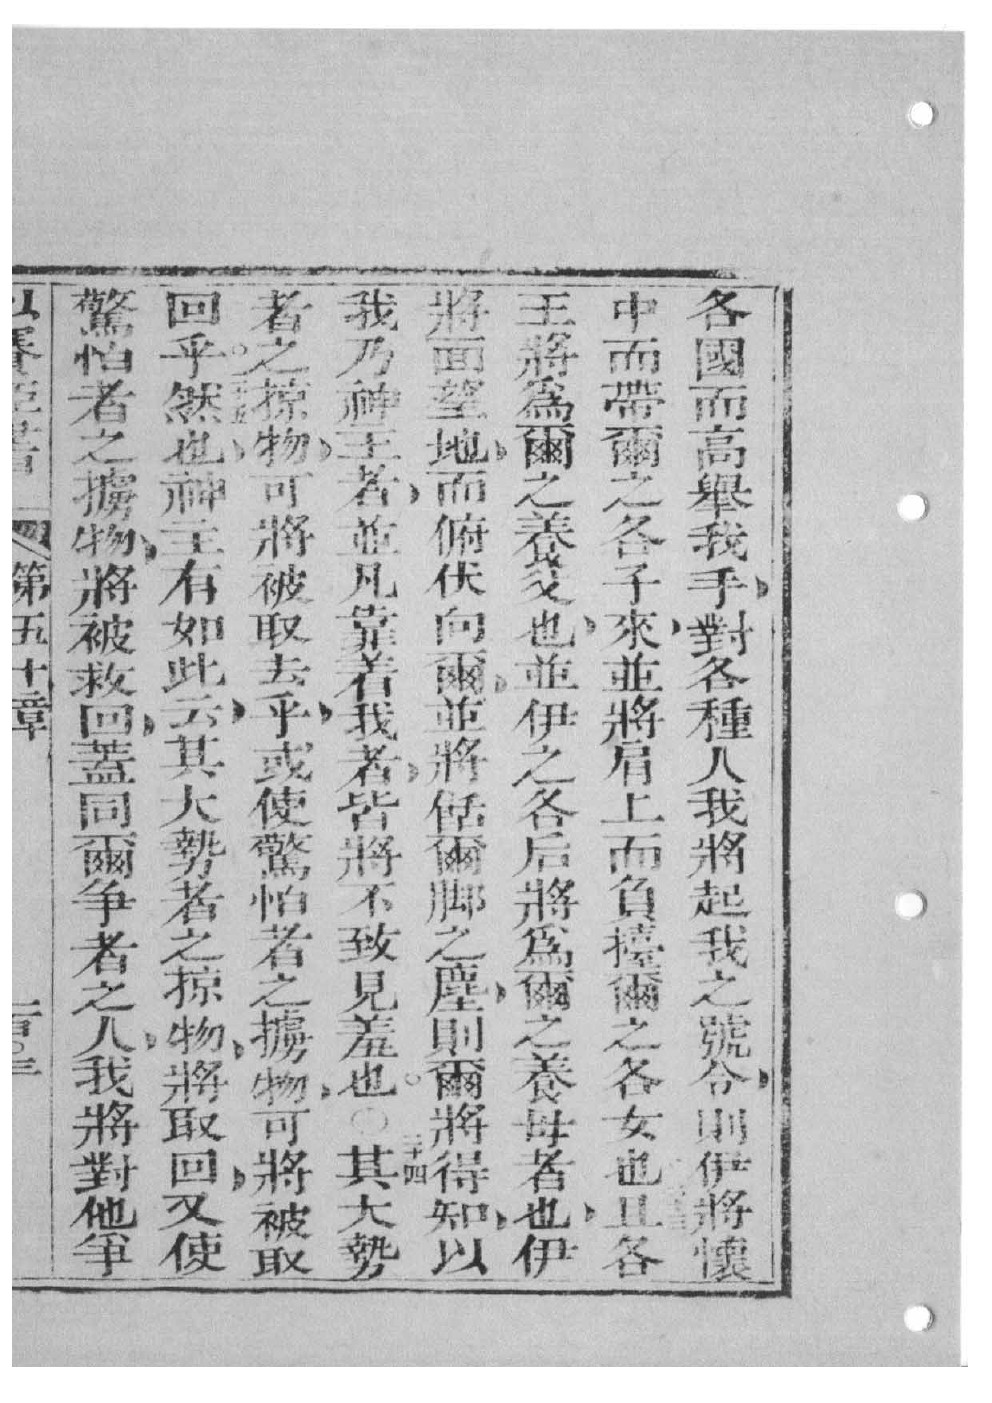 各國而高舉我手對各種人我將起我之號令則伊將懷
中而帶爾之各子來並將肩上而負擡爾之各女也且各
王將爲爾之養父也並伊之各后將爲爾之養母者也伊
將面望地而俯伏向爾並將餂爾脚之塵則爾將得知以
我乃神主者並凡靠着我者皆將不致見羞也。○二十四其大勢
者之掠物可將被取去乎或使驚怕者之擄物可將被取
回乎。二十五然也神主有如此云其大勢者之掠物將取回又使
驚怕者之擄物將被救回蓋同爾爭者之人我將對他爭
第五十章